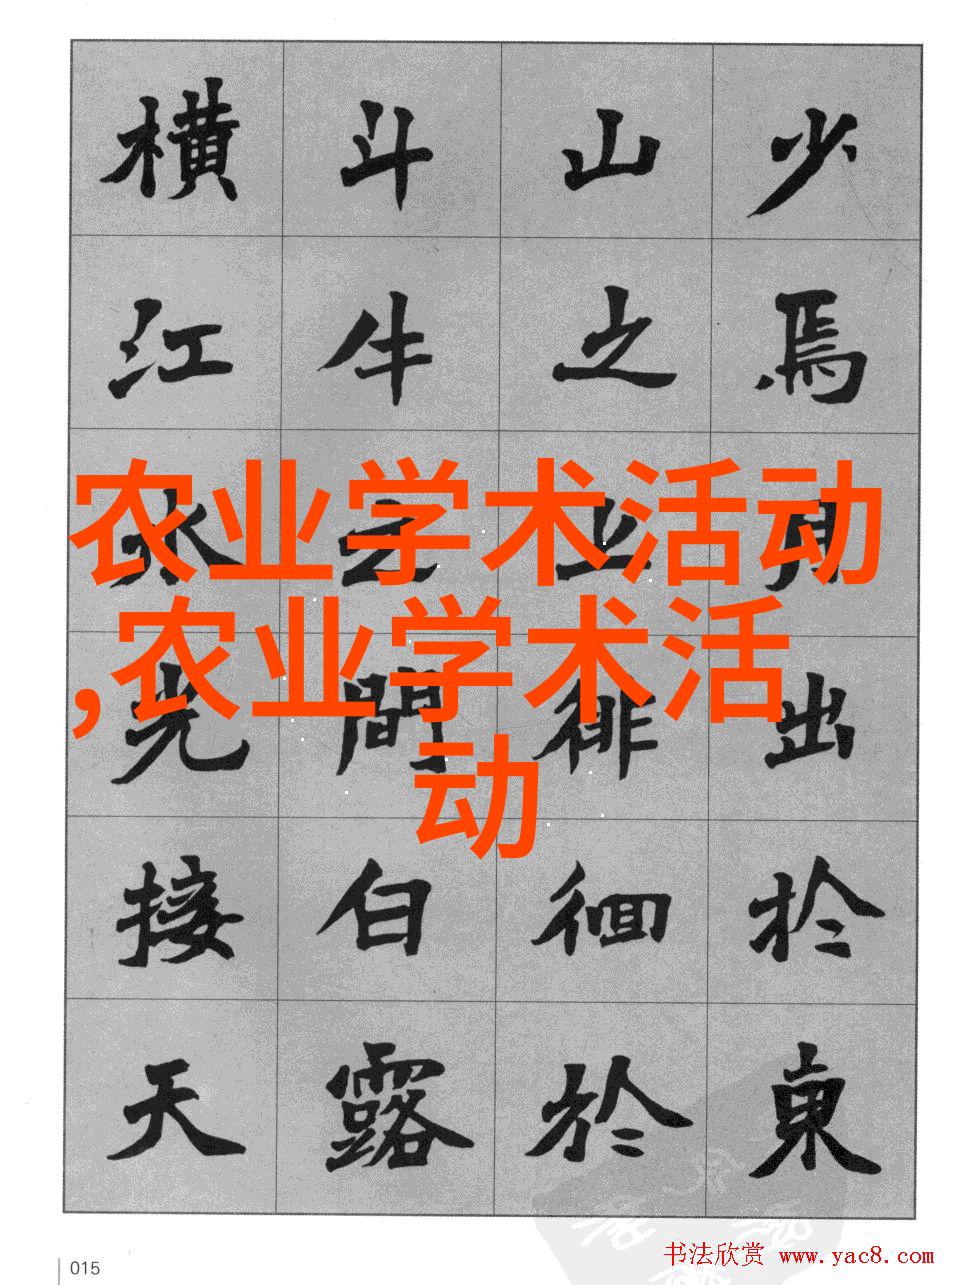 少焉月出於東
山之上徘徊於
斗牛之間白露
横江水光接天
农业学术活动
,农业学术活
动
015
书法欣赏 www.yac8.com